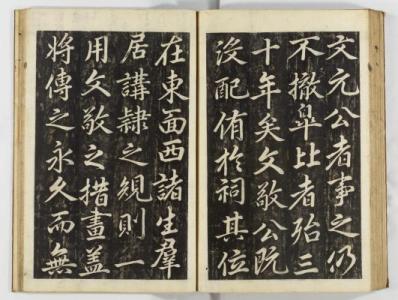 文元公者事之仍
不撤皐比者殆三
十年矣文敬公既
没配侑於祠其位
在東面西諸生羣
居講隷之規則一
用文敬之措畫盖
將傳之永久而無